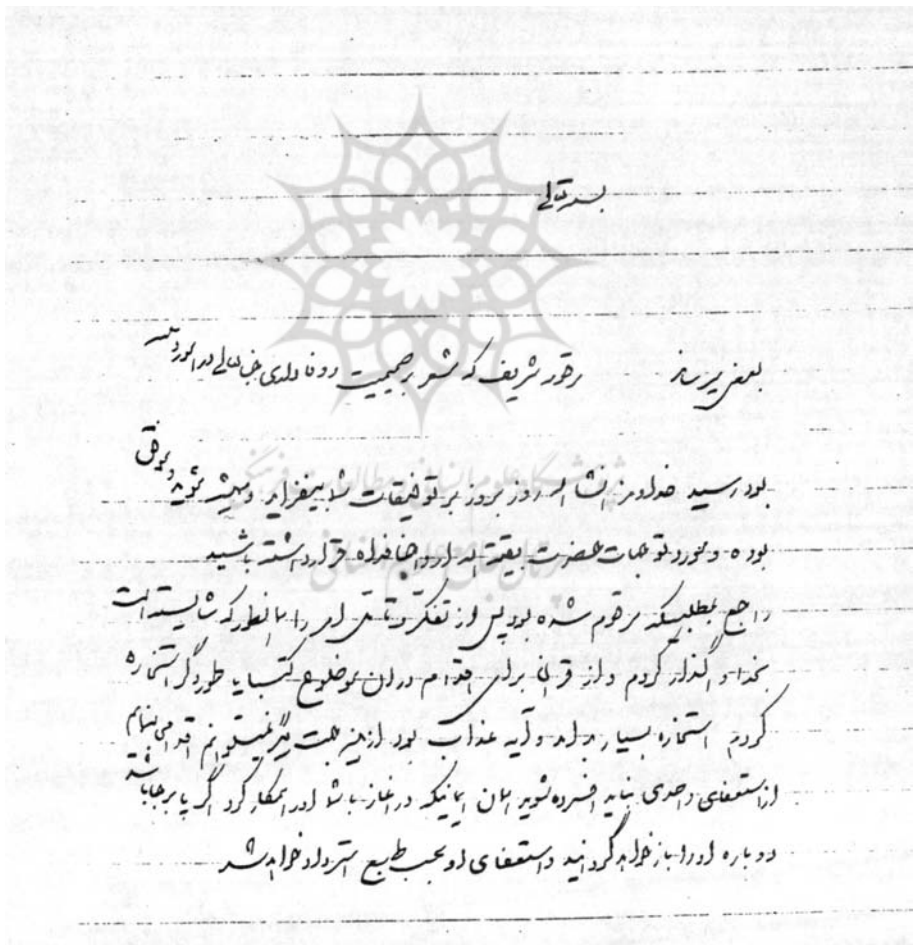 بسمه تعالی
بعرض میرساند رقوم شریف که مشعر بر صمیمیت و وفاداری جنابعالی
بود رسید خداوند انشاء الله روز بروز بر توفیقات شما بیفزاید و همیشه مؤید و موفق
بوده و مورد توجهات حضرت بقیة الله ارواحنا فداه قرار داشته باشید
راجع بمطلبیکه مرقوم شده بود پس از تفکر و تأمل امر را همانطور که شایسته است
بخدا واگذار کردم و از قرآن برای اقدام در آن موضوع کتبا یا طور دگر استخاره
کردم استخاره بسیار بد آمد و آیه عذاب بود از این جهت دیگر نمیتوانم اقدامی بنمایم
از استعفای احدی نباید افسرده شوید همان ایمانیکه در آغاز با شما او را همکار کرد اگر پا برجا باشد
دوباره او را باز خواهد گردانید و استعفای او بحسب طبع استرداد خواهد شد
پژوهشگاه علوم انسانی و مطالعات فرهنگی
پرتال جامع علوم انسانی